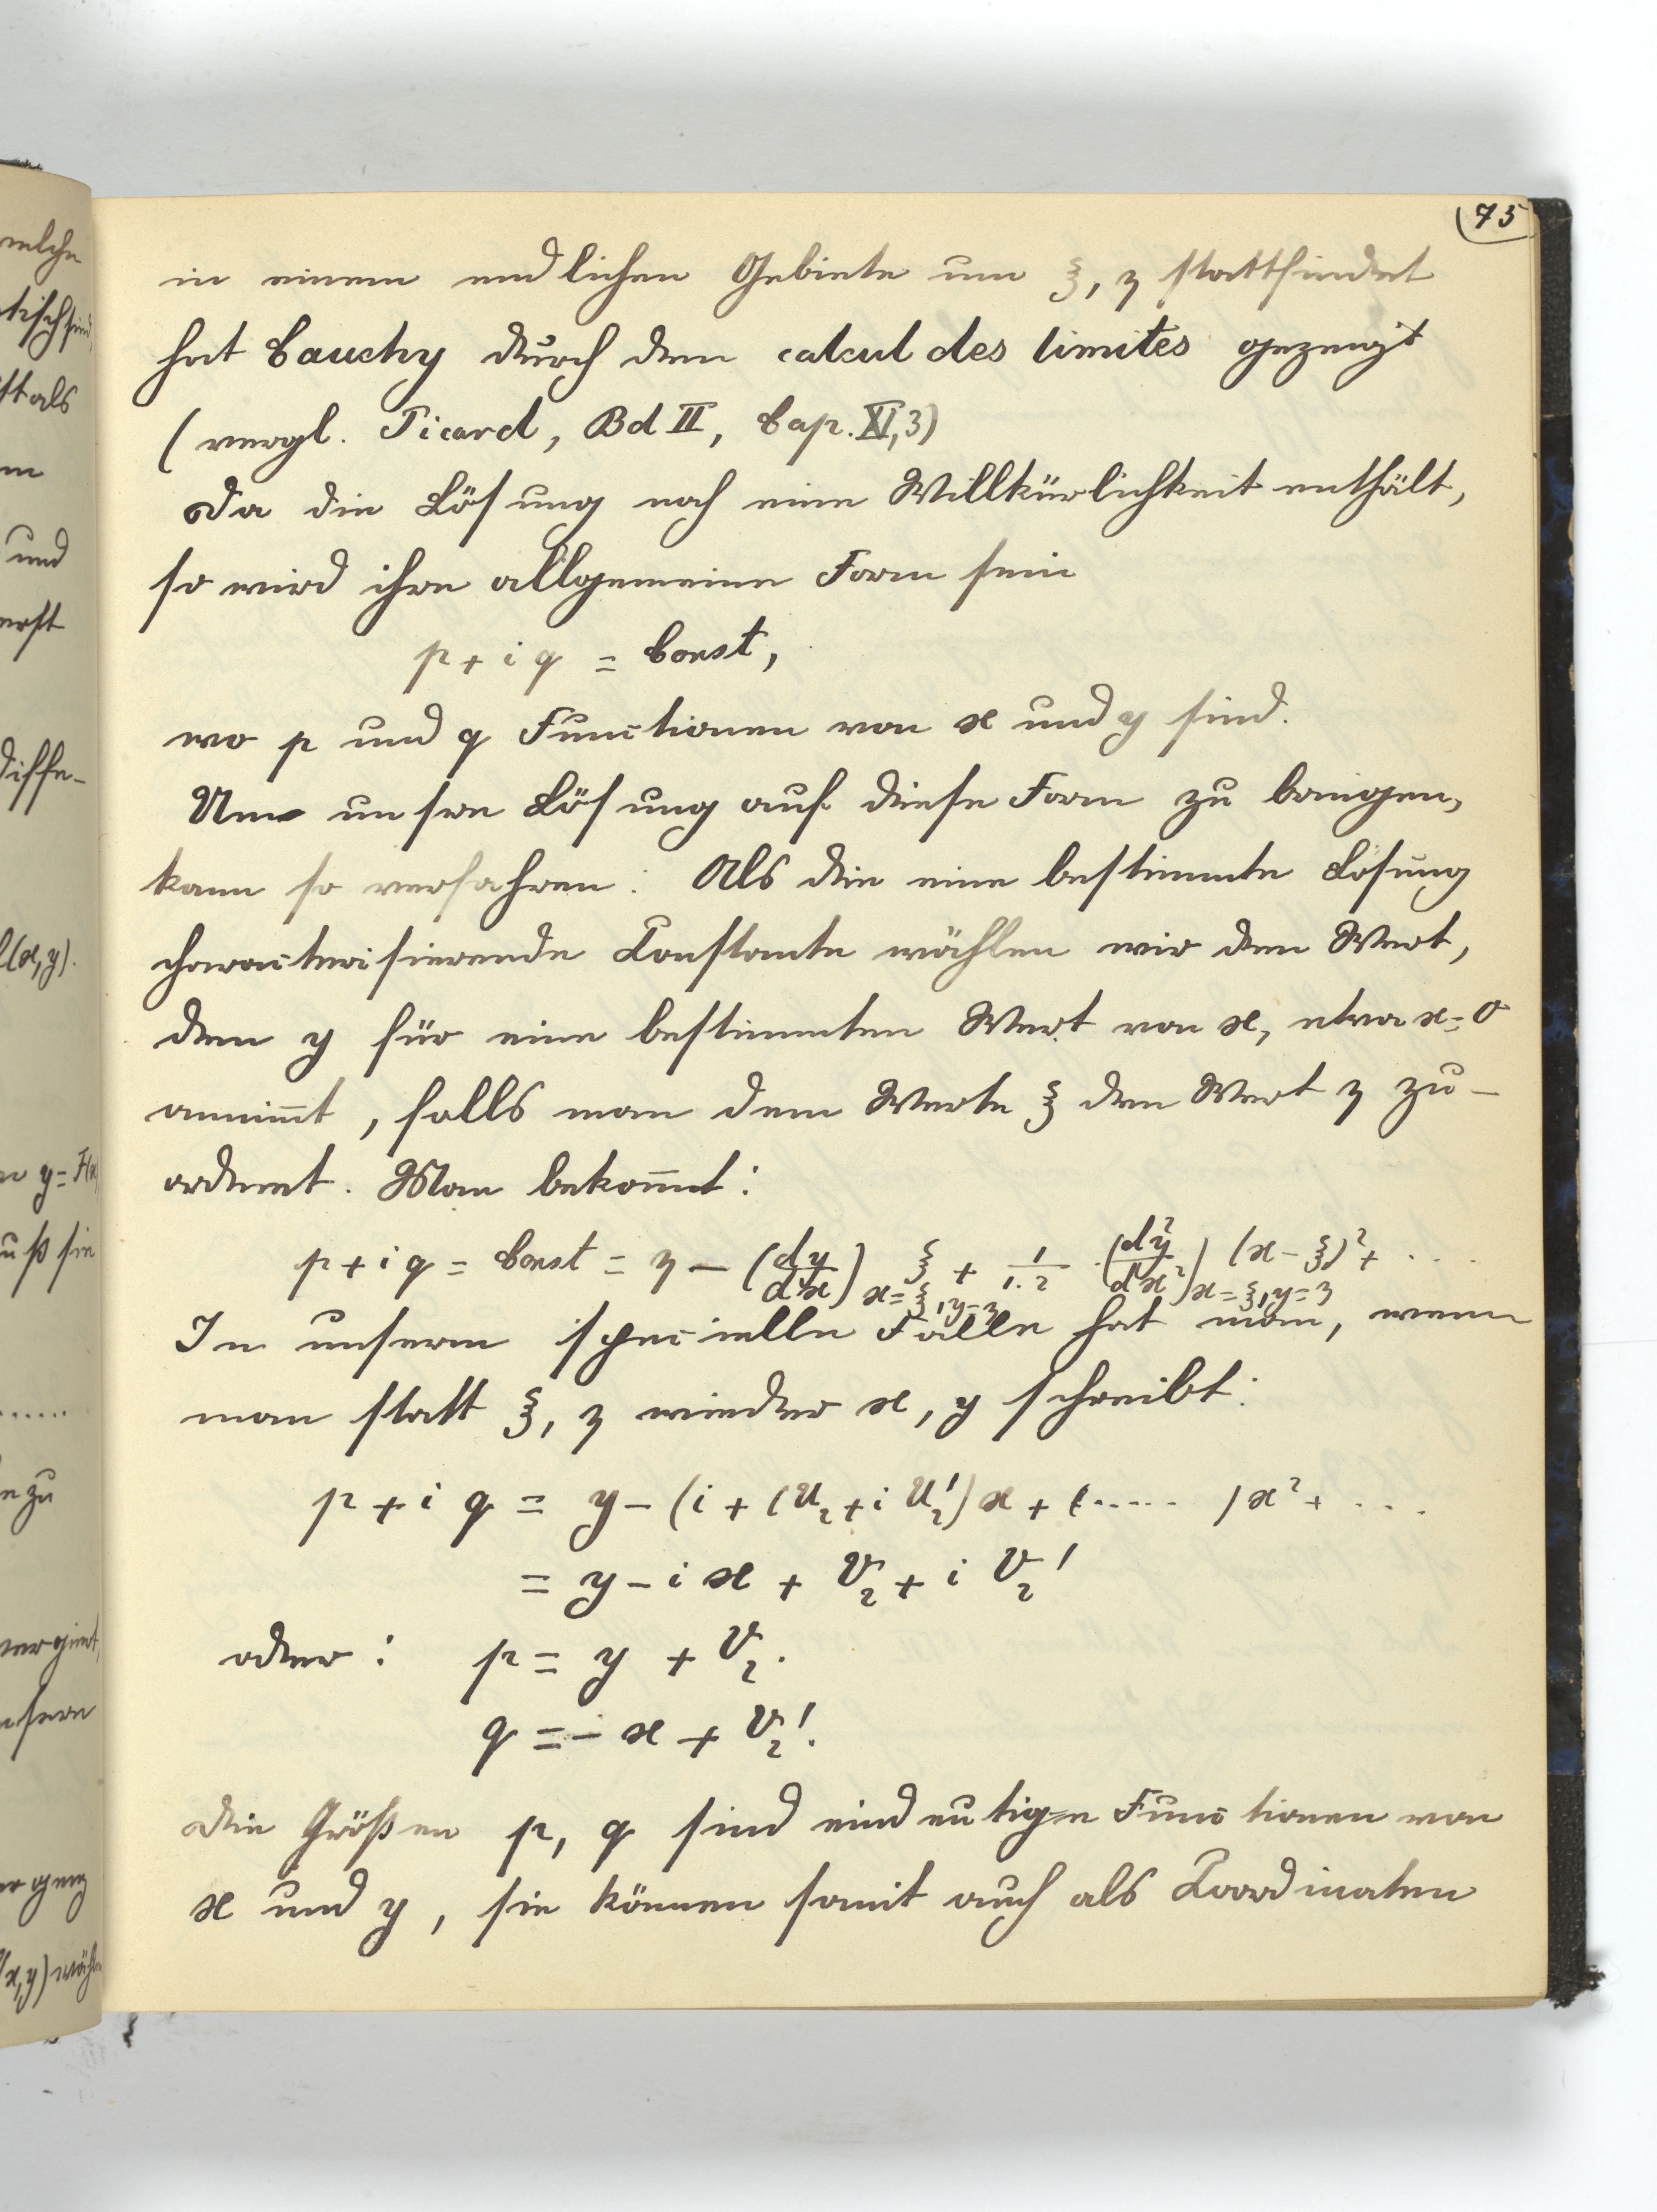 75
in einem endlichen Gebiete um ξ, η stattfindet
hat Cauchy durch den calcul des limites gezeigt
(vergl. Picard, Bd II, Cap. XI, 3)
Da die Lösung noch eine Willkürlichkeit enthält,
so wird ihre allgemeine Form sein
p + i q = Const,
wo p und q Functionen von x und y sind.
Um unsre Lösung auf diese Form zu bringen,
kann so verfahren: Als die eine bestimmte Lösung
characterisierende Constante wählen wir den Wert,
den y für eine bestimmten Wert von x, etwa x = 0
annim̅t, falls man dem Werte ξ den Wert η zu-
ordnet. Man bekom̅t:
p + i q = Const = η − (dy/dx)_{x=ξ, y=η} ξ + 1/1.2 (d²y/dx²)_{x=ξ, y=η} (x − ξ)² + ....
In unserm specielle Falle hat man, wenn
man statt ξ, η wieder x, y schreibt:
p + i q = y − (i + (U₂ + i U₂') x + (..... ) x² + ....
= y − i x + V₂ + i V₂'
oder: p = y + V₂.
q = − x + V₂'.
Die Größen p, q sind eindeutige Functionen von
x und y, sie können somit auch als Coordinaten
welche
und
diffe-
y = F(x)
muß sie
zu